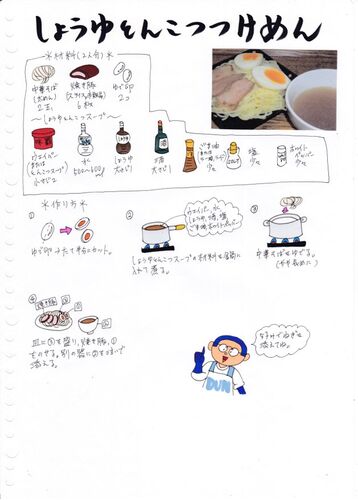 しょうゆとんこつつけめん
＊材料(2人分)＊
中華そば
(太めん)
2玉
焼き豚
(スライス・市販品)
6枚
ゆで卵
2コ
〜しょうゆとんこつスープ〜
ウェイパー
(または
とんこつスープ)
小さじ2
水
500〜600cc
しょうゆ
大さじ1
酒
大さじ1
ごま油
少々
塩
少々
ホワイト
ペッパー
少々
＊作り方＊
①
ゆで卵のふたて半分にカット。
②
ウェイパー、水
しょうゆ、酒、塩
ごま油、ホワイトペッパー
しょうゆとんこつスープの材料を全部に
入れて煮る。
③
中華そばをゆでる。
(やや長めに)
④
焼き豚
①
②
皿に③を盛り、焼き豚、①
をのせる。別の器に②をそそいで
添える。
DUN